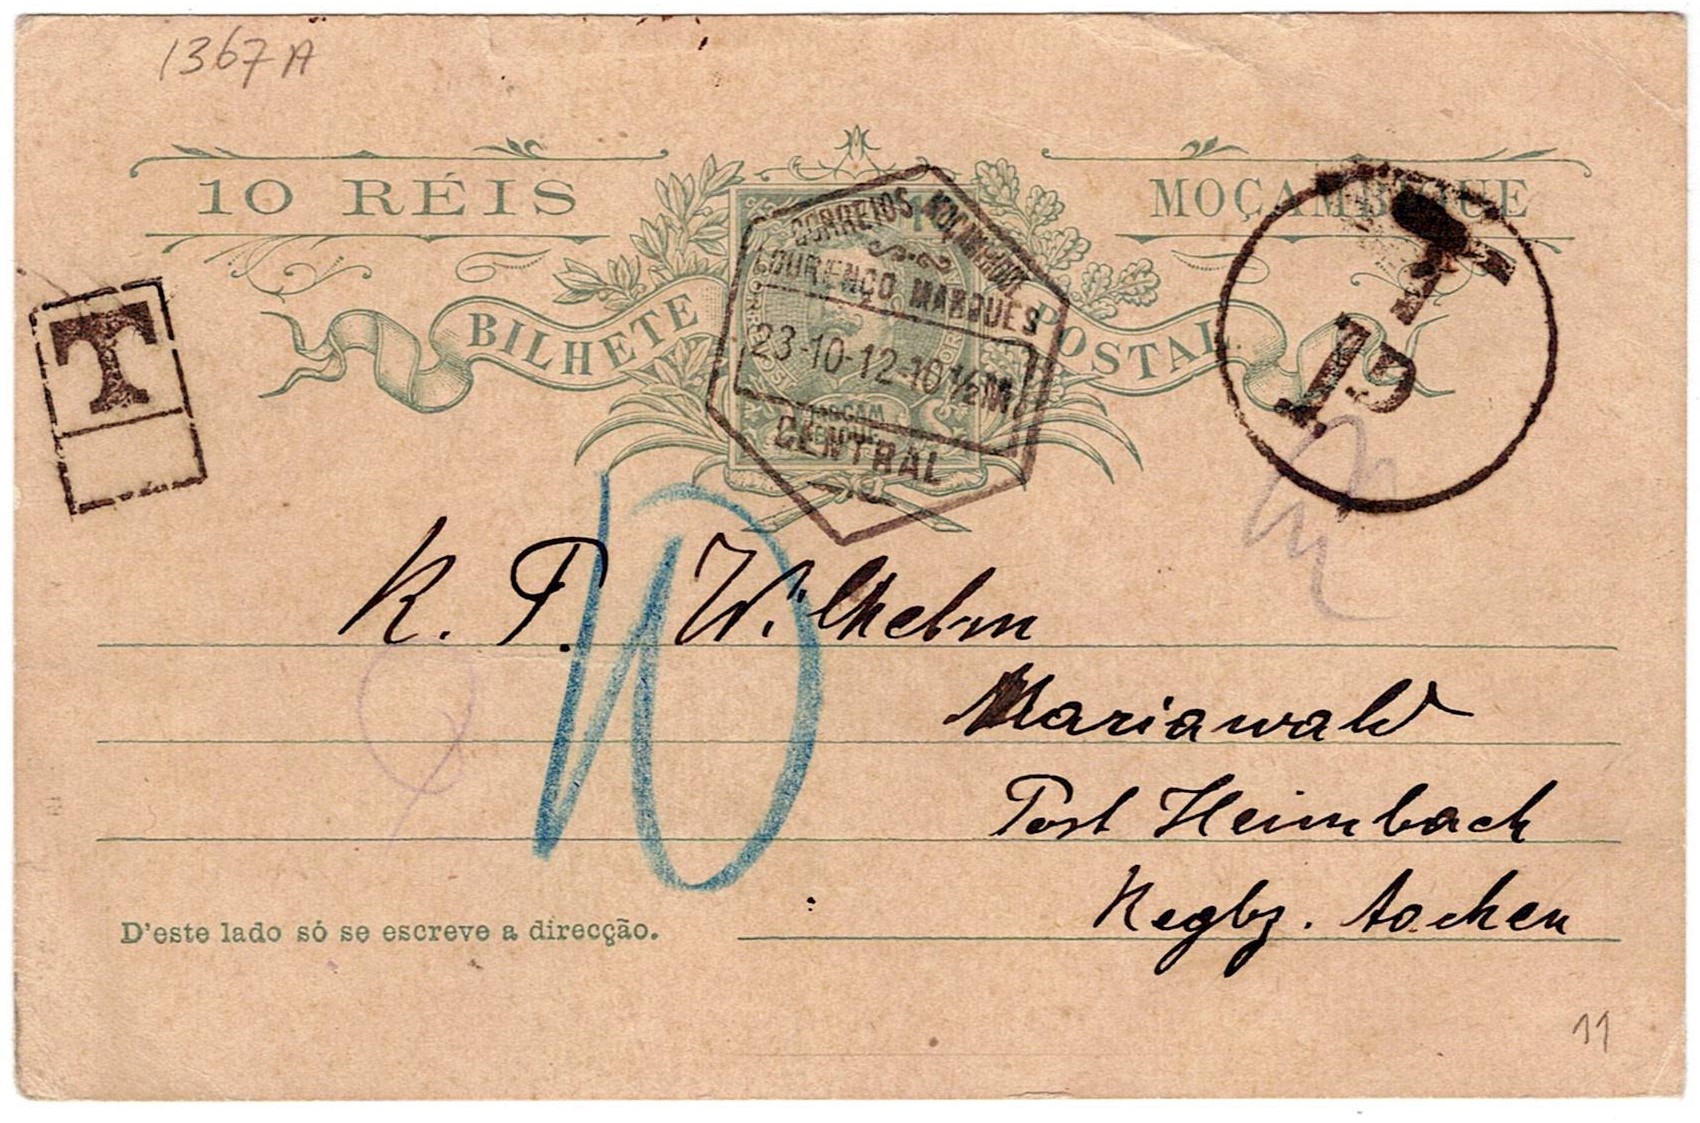 1367A
10 RÉIS
MOÇAMBIQUE
BILHETE POSTAL
CORREIOS MOÇAMBIQUE
LOURENÇO MARQUES
23-10-12-10½M
CENTRAL
MOÇAM
BIQUE
T
T
15
10
K. P. Wilhelm
Mariawald
Post Heimbach
Regbz. Aachen
D'este lado só se escreve a direcção.
11